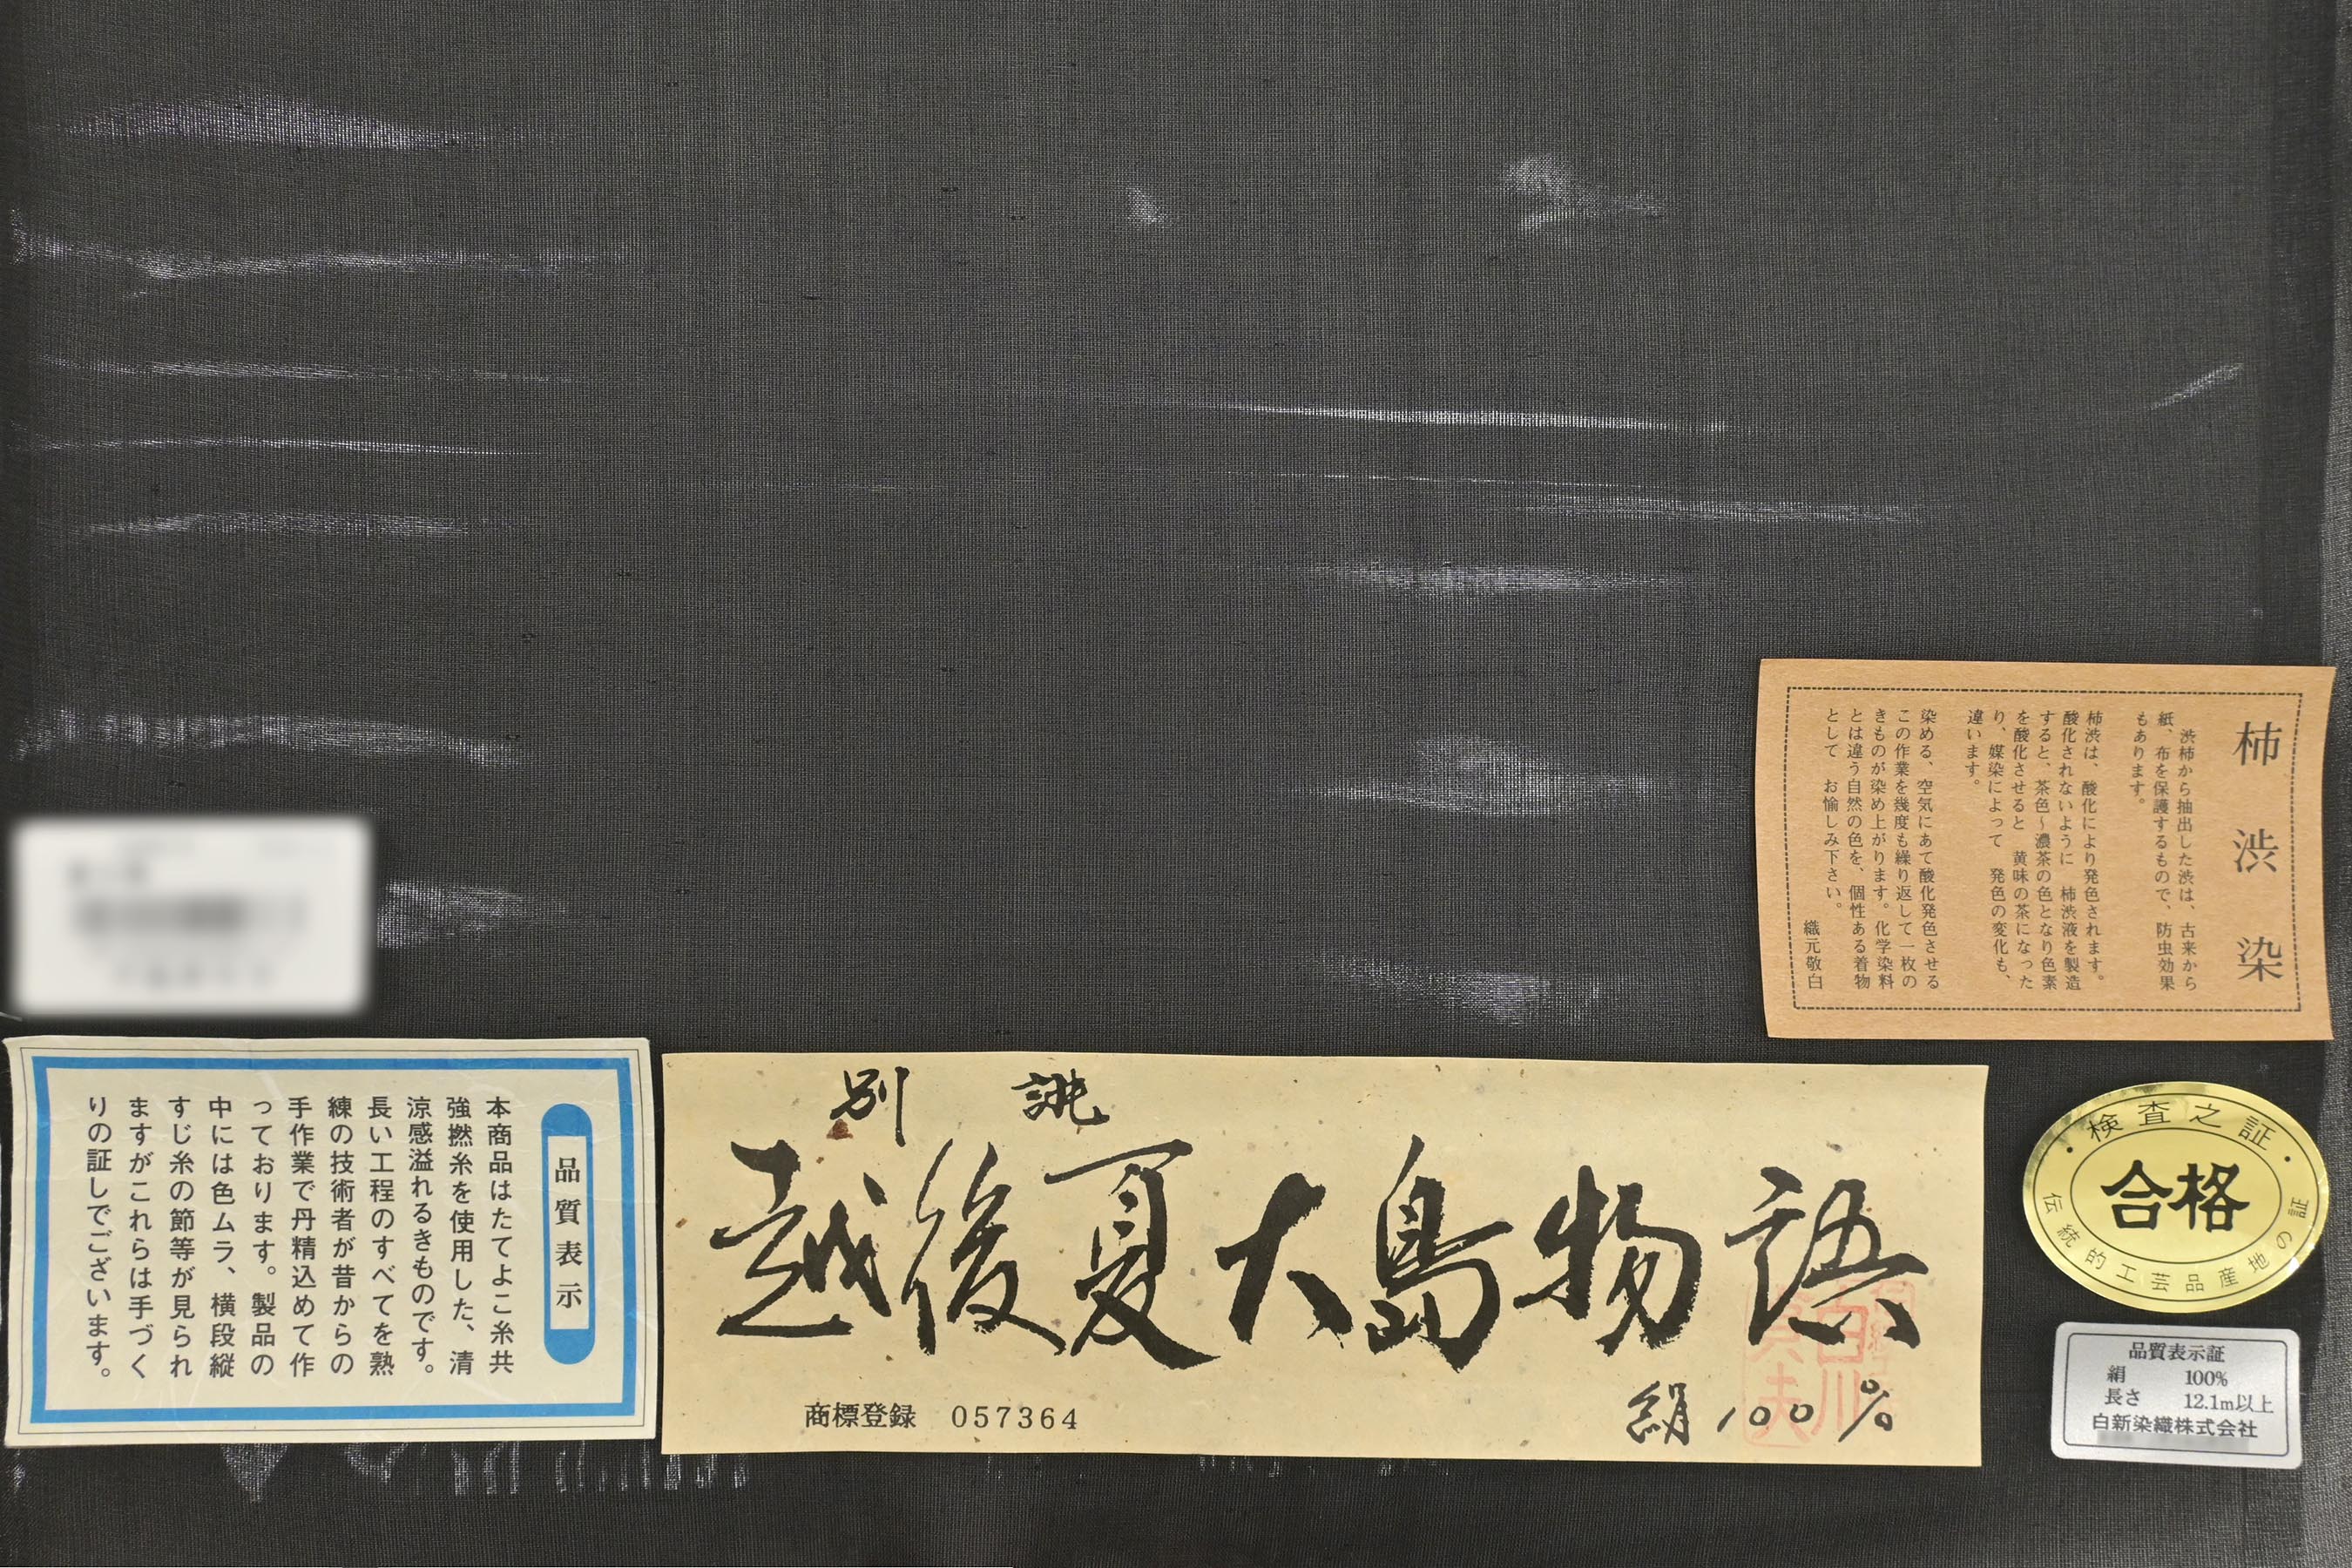 柿渋染
渋柿から抽出した渋は、古来から
紙、布を保護するもので、防虫効果
もあります。
柿渋は、酸化により発色されます。
酸化されないように 柿渋液を製造
すると、茶色～濃茶の色となり色素
を酸化させると 黄味の茶になった
り、媒染によって 発色の変化も、
違います。
染める、空気にあて酸化発色させる
この作業を幾度も繰り返して一枚の
きものが染め上がります。化学染料
とは違う自然の色を、個性ある着物
として お愉しみ下さい。
織元敬白
品質表示
本商品はたてよこ糸共
強撚糸を使用した、清
涼感溢れるきものです。
長い工程のすべてを熟
練の技術者が昔からの
手作業で丹精込めて作
っております。製品の
中には色ムラ、横段縦
すじ糸の節等が見られ
ますがこれらは手づく
りの証しでございます。
別誂
越後夏大島物語
商標登録 057364
絹100%
・検査之証・
合格
伝統的工芸品産地の証
品質表示証
絹 100%
長さ 12.1m以上
白新染織株式会社